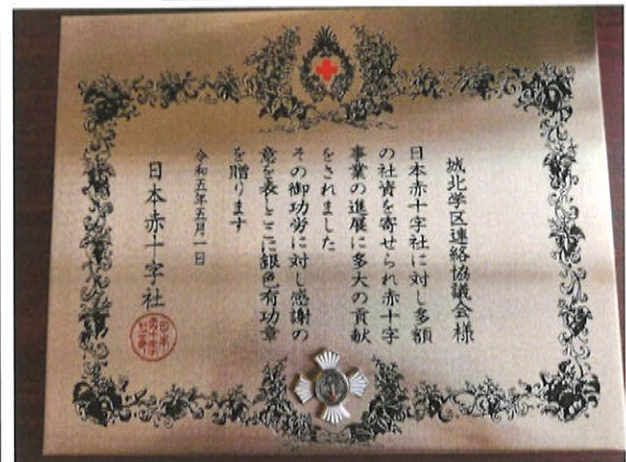 城北学区連絡協議会様
日本赤十字社に対し多額
の社資を寄せられ赤十字
事業の進展に多大の貢献
をされました
その御功労に対し感謝の
意を表しここに銀色有功章
を贈ります
令和五年五月一日
日本赤十字社